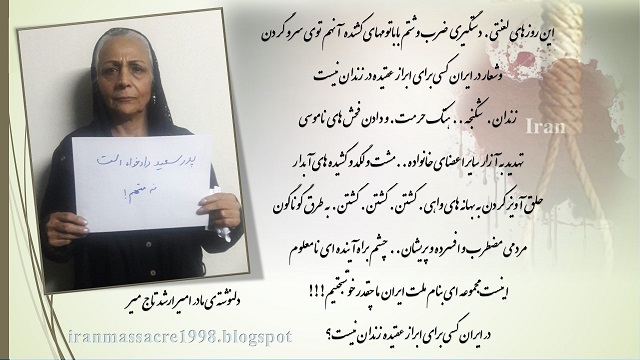 این روزهای لعنتی. دستگیری ضرب و شتم با باتومهای کشنده آنهم توی سر و گردن
و شعار در ایران کسی برای ابراز عقیده در زندان نیست
زندان. شکنجه.. هتک حرمت. و دادن فحش های ناموسی
تهدید به آزار سایر اعضای خانواده.. مشت و لگد و کشیده های آبدار
حلق آویز کردن به بهانه های واهی. کشتن. کشتن. کشتن. به طرق گوناگون
مردمی مضطرب و افسرده و پریشان.. چشم براه آینده ای نامعلوم
اینست مجموعه ای بنام ملت ایران ما چقدر خوشبختیم !!!
در ایران کسی برای ابراز عقیده زندان نیست؟
Iran
پدر سعید دادخواه است
نه متهم!
دلنوشته ی مادر امیر ارشد تاج میر
iranmassacre1998.blogspot